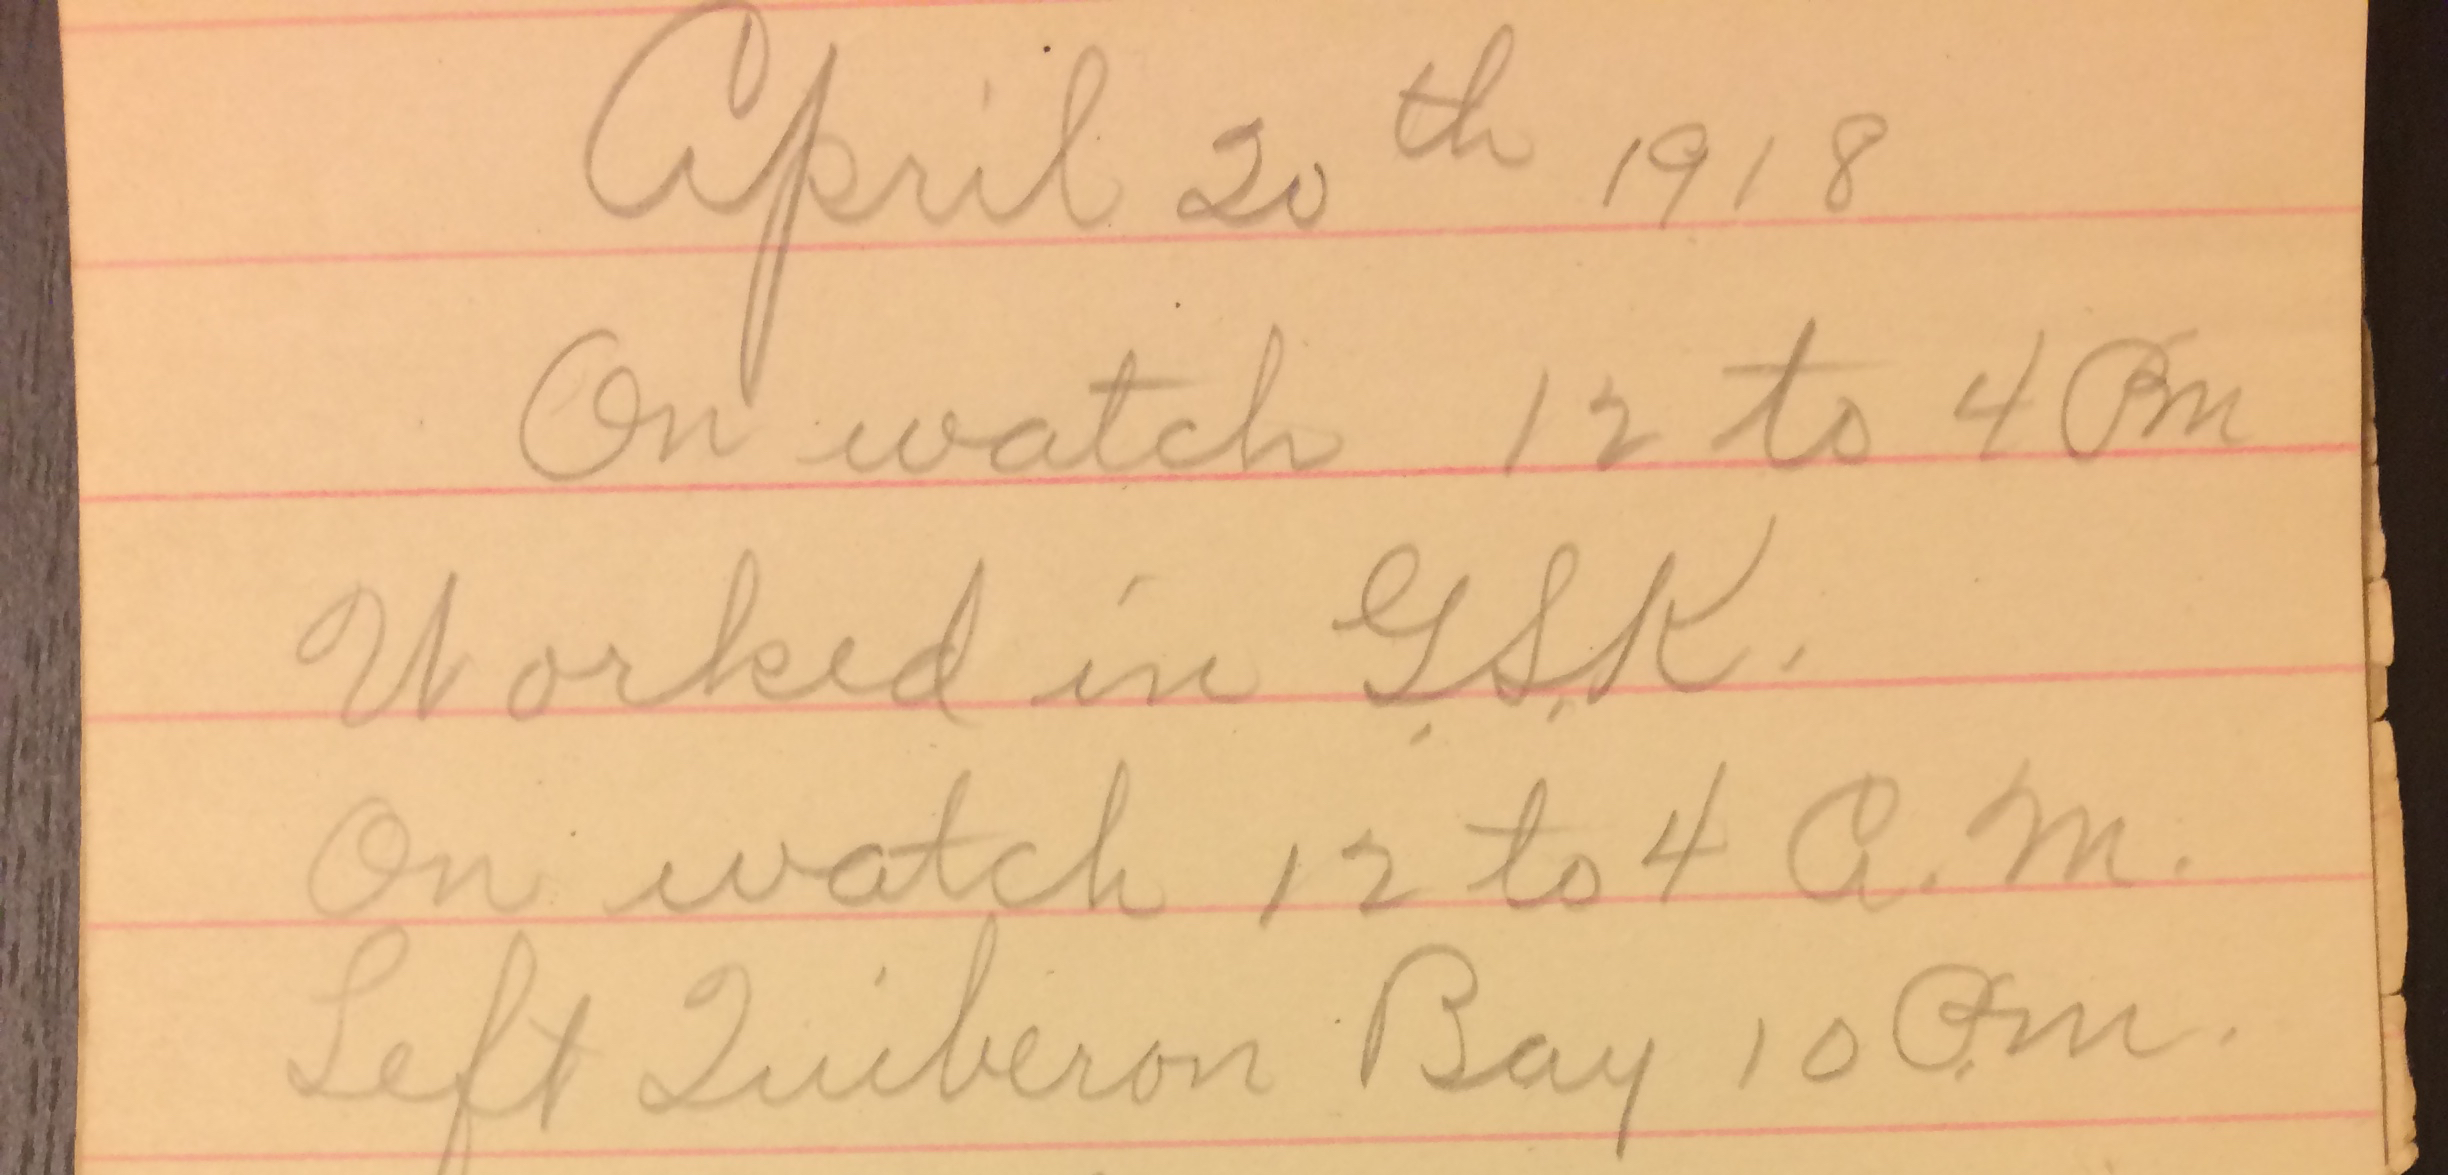 April 20th 1918
On watch 12 to 4 Pm
Worked in G.S.K.
On watch 12 to 4 A.M.
Left Quiberon Bay 10 P.m.